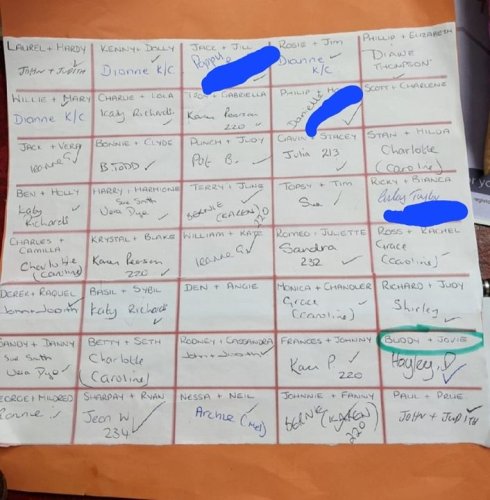 LAUREL + HARDY
JOHN + JUDITH
KENNY + DOLLY
Dionne K/C
JACK + JILL
Poppy
ROSIE + JIM
Dionne K/C
PHILLIP + ELIZABETH
DIANE
THOMPSON
WILLIE + MARY
Dionne K/C
CHARLIE + LOLA
Katy Richards
TROY + GABRIELLA
Karen Pearson
220
PHILIP
Danielle
SCOTT + CHARLENE
JACK + VERA
Leanne G
BONNIE + CLYDE
B. TODD
PUNCH + JUDY
Pat B.
GAVIN + STACEY
Julia 213
STAN + HILDA
Charlotte
(Caroline)
BEN + HOLLY
Katy
Richards
HARRY + HARMIONE
Sue Smith
Vera Dyo
TERRY + JUNE
BERNIE
(KAREN)
220
TOPSY + TIM
Sue
RICKY + BIANCA
CHARLES +
CAMILLA
Charlotte
(Caroline)
KRYSTAL + BLAKE
Karen Pearson
220
WILLIAM + KATE
Leanne G
ROMEO + JULIETTE
Sandra
232
ROSS + RACHEL
Grace
(Caroline)
DEREK + RAQUEL
John + Judith
BASIL + SYBIL
Katy Richards
DEN + ANGIE
MONICA + CHANDLER
Grace
(Caroline)
RICHARD + JUDY
Shirley
SANDY + DANNY
Sue Smith
Vera Dyo
BETTY + SETH
Charlotte
(Caroline)
RODNEY + CASSANDRA
John + Judith
FRANCES + JOHNNY
Karen P
220
BUDDY + JOVIE
Hayley D
GEORGE + MILDRED
SHARPAY + RYAN
Jean W
234
NESSA + NEIL
Archie (Mel)
JOHNNIE + FANNY
BERNIE (KAREN)
220
PAUL + PRUE
JOHN + JUDITH